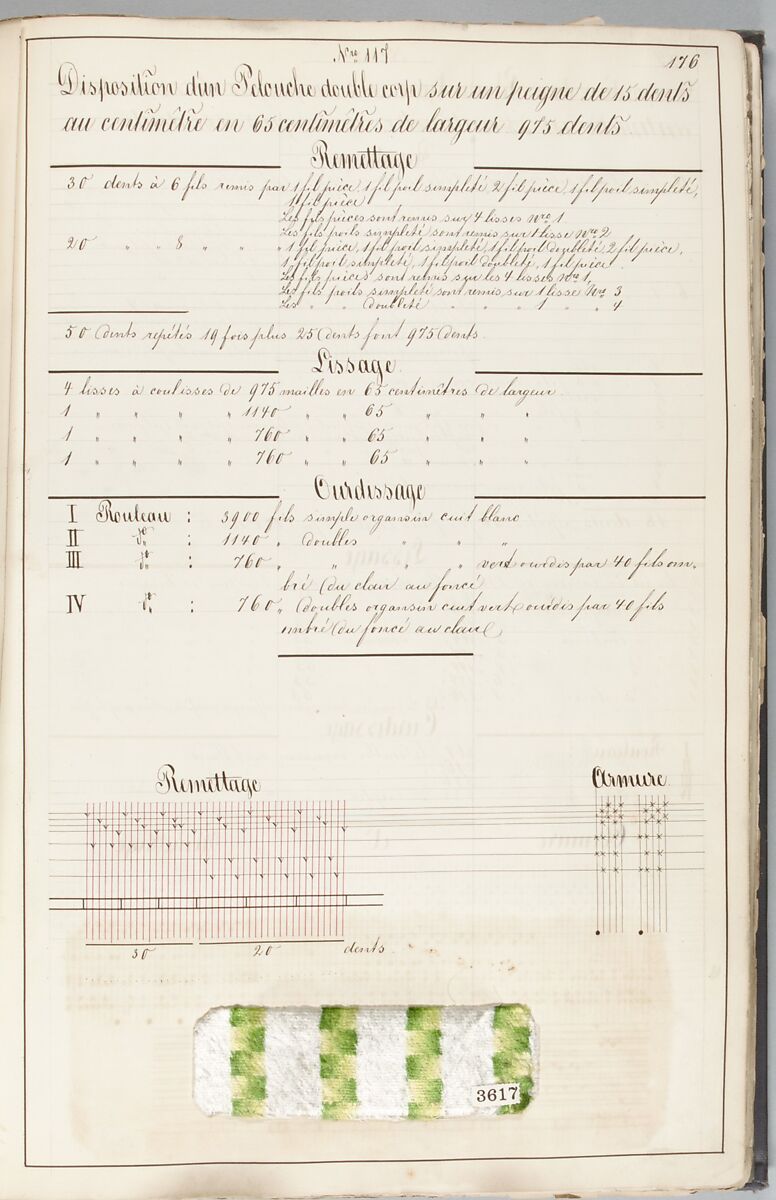 Nro 117
176
Disposition d'un Pelouche double corp sur un peigne de 15 dents
au centimêtre en 65 centimêtres de largeur 975 dents
Remettage
30 dents à 6 fils remis par 1 fil pièce, 1 fil poil simpleté 2 fil pièce, 1 fil poil simpleté,
1 fil pièce
Les fils pièces sont remis sur 4 lisses Nro 1
Les fils poils simpleté sont remis sur 1 lisse Nro 2
20 " " 8 " " " 1 fil pièce, 1 fil poil simpleté, 1 fil poil doubleté, 2 fil pièce,
1 fil poil simpleté, 1 fil poil doubleté, 1 fil pièce
Les fils pièces sont remis sur les 4 lisses No 1,
Les fils poils simpleté sont remis sur 1 lisse Nro 3
Les " " doubleté " " " 1 " " 4
50 dents repétés 19 fois plus 25 dents font 975 dents.
Lissage
4 lisses à coulisses de 975 mailles en 65 centimêtres de largeur
1 " " " " 1140 " " 65 " " "
1 " " " " 760 " " 65 " " "
1 " " " " 760 " " 65 " " "
Ourdissage
I Rouleau : 3900 fils simple organsin cuit blanc
II do : 1140 " doubles " " "
III do : 760 " " " " vert ourdis par 40 fils om,
bré du clair au foncé
IV do : 760 " doubles organsin cuit vert ourdis par 40 fils
ombré du foncé au clair
Remettage
Armure
30 20 dents
3617